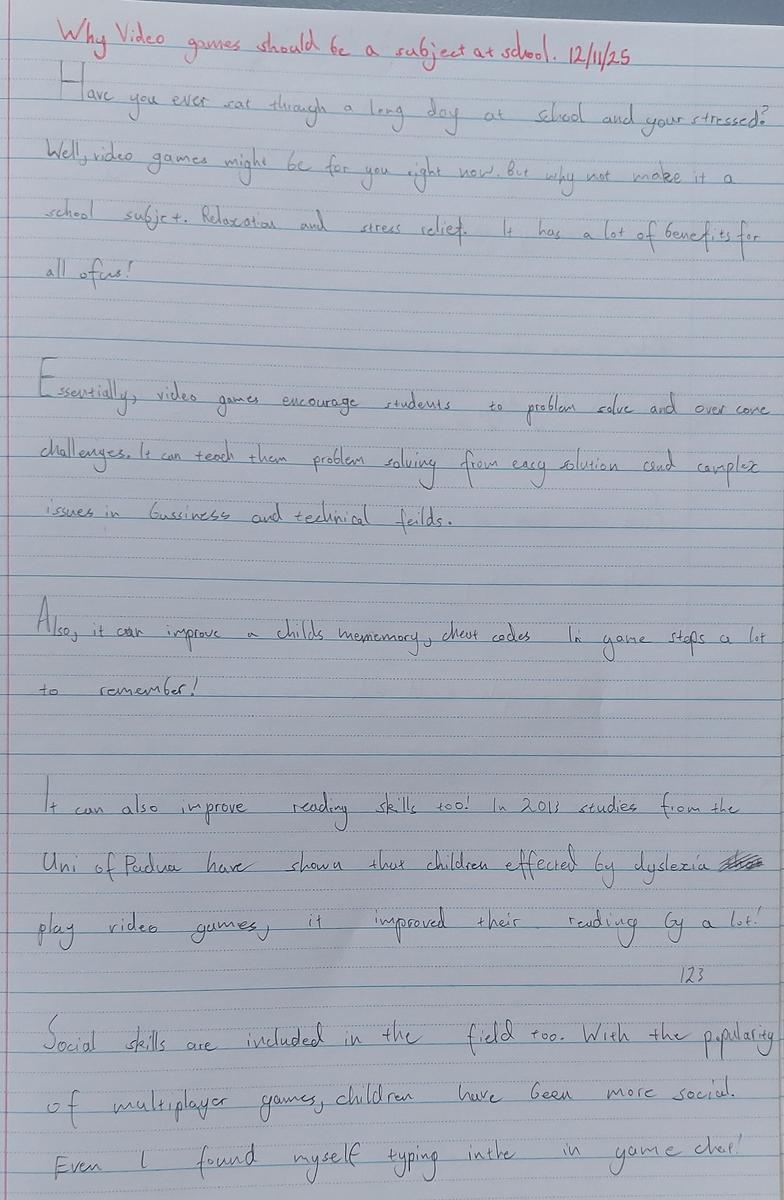 Why Video games should be a subject at school. 12/11/25
Have you ever sat through a long day at school and your stressed?
Well, video games might be for you right now. But why not make it a
school subjct. Relaxation and stress relief. It has a lot of benefits for
all of us!
Essentially, video games encourage students to problem solve and over come
challenges. It can teach them problem solving from easy solution and complex
issues in bussiness and technical feilds.
Also, it can improve a childs mememory, cheat codes In game steps a lot
to remember!
It can also improve reading skills too! In 2013 studies from the
Uni of Padua have shown that children effected by dyslexia
play video games, it improved their reading by a lot!
123
Social skills are included in the field too. With the popularity
of multiplayer games, children have been more social.
Even I found myself typing inthe in game chat!